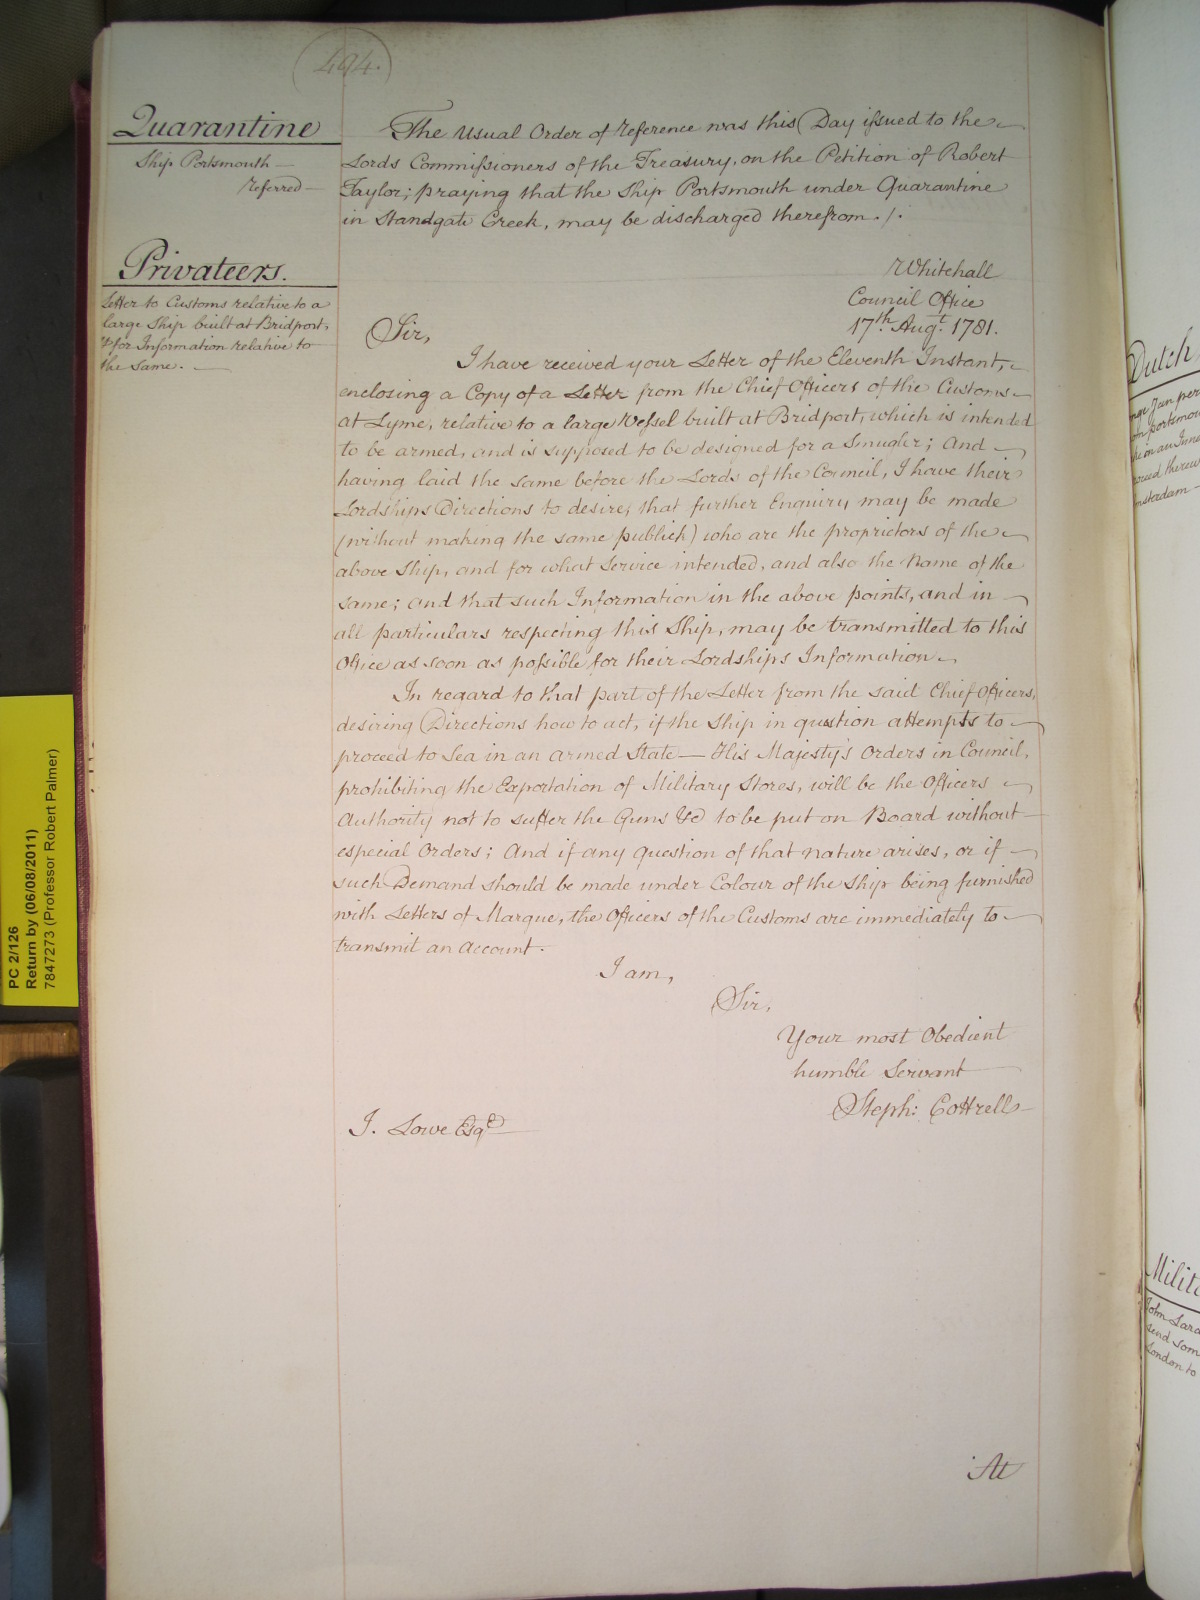 494.
Quarantine
Ship Portsmouth —
referred —
The Usual Order of Reference was this Day issued to the
Lords Commissioners of the Treasury, on the Petition of Robert
Taylor; praying that the Ship Portsmouth under Quarantine
in Standgate Creek, may be discharged therefrom ./.
Privateers.
Letter to Customs relative to a
large Ship built at Bridport,
& for Information relative to
the same. —
Whitehall
Council Office
17th. Augt. 1781.
Sir,
I have received your Letter of the Eleventh Instant,
enclosing a Copy of a Letter from the Chief Officers of the Customs
at Lyme, relative to a large Vessel built at Bridport, which is intended
to be armed, and is supposed to be designed for a Smugler; And
having laid the same before the Lords of the Council, I have their
Lordships Directions to desire, that further Enquiry may be made
(without making the same publick) who are the proprietors of the
above Ship, and for what Service intended, and also the Name of the
same; and that such Information in the above points, and in
all particulars respecting this Ship, may be transmitted to this
Office as soon as possible for their Lordships Information.
In regard to that part of the Letter from the said Chief Officers,
desiring Directions how to act, if the Ship in question attempts to
proceed to Sea in an armed State — His Majesty's Orders in Council,
prohibiting the Exportation of Military Stores, will be the Officers
Authority not to suffer the Guns &c to be put on Board without
especial Orders; And if any Question of that nature arises, or if
such Demand should be made under Colour of the Ship being furnished
with Letters of Marque, the Officers of the Customs are immediately to
transmit an Account.
I am,
Sir,
Your most Obedient
humble Servant
Steph: Cottrell
J. Lowe Esqe.
At
PC 2/126
Return by (06/08/2011)
7847273 (Professor Robert Palmer)
Dutch
John Lara
send som
London to